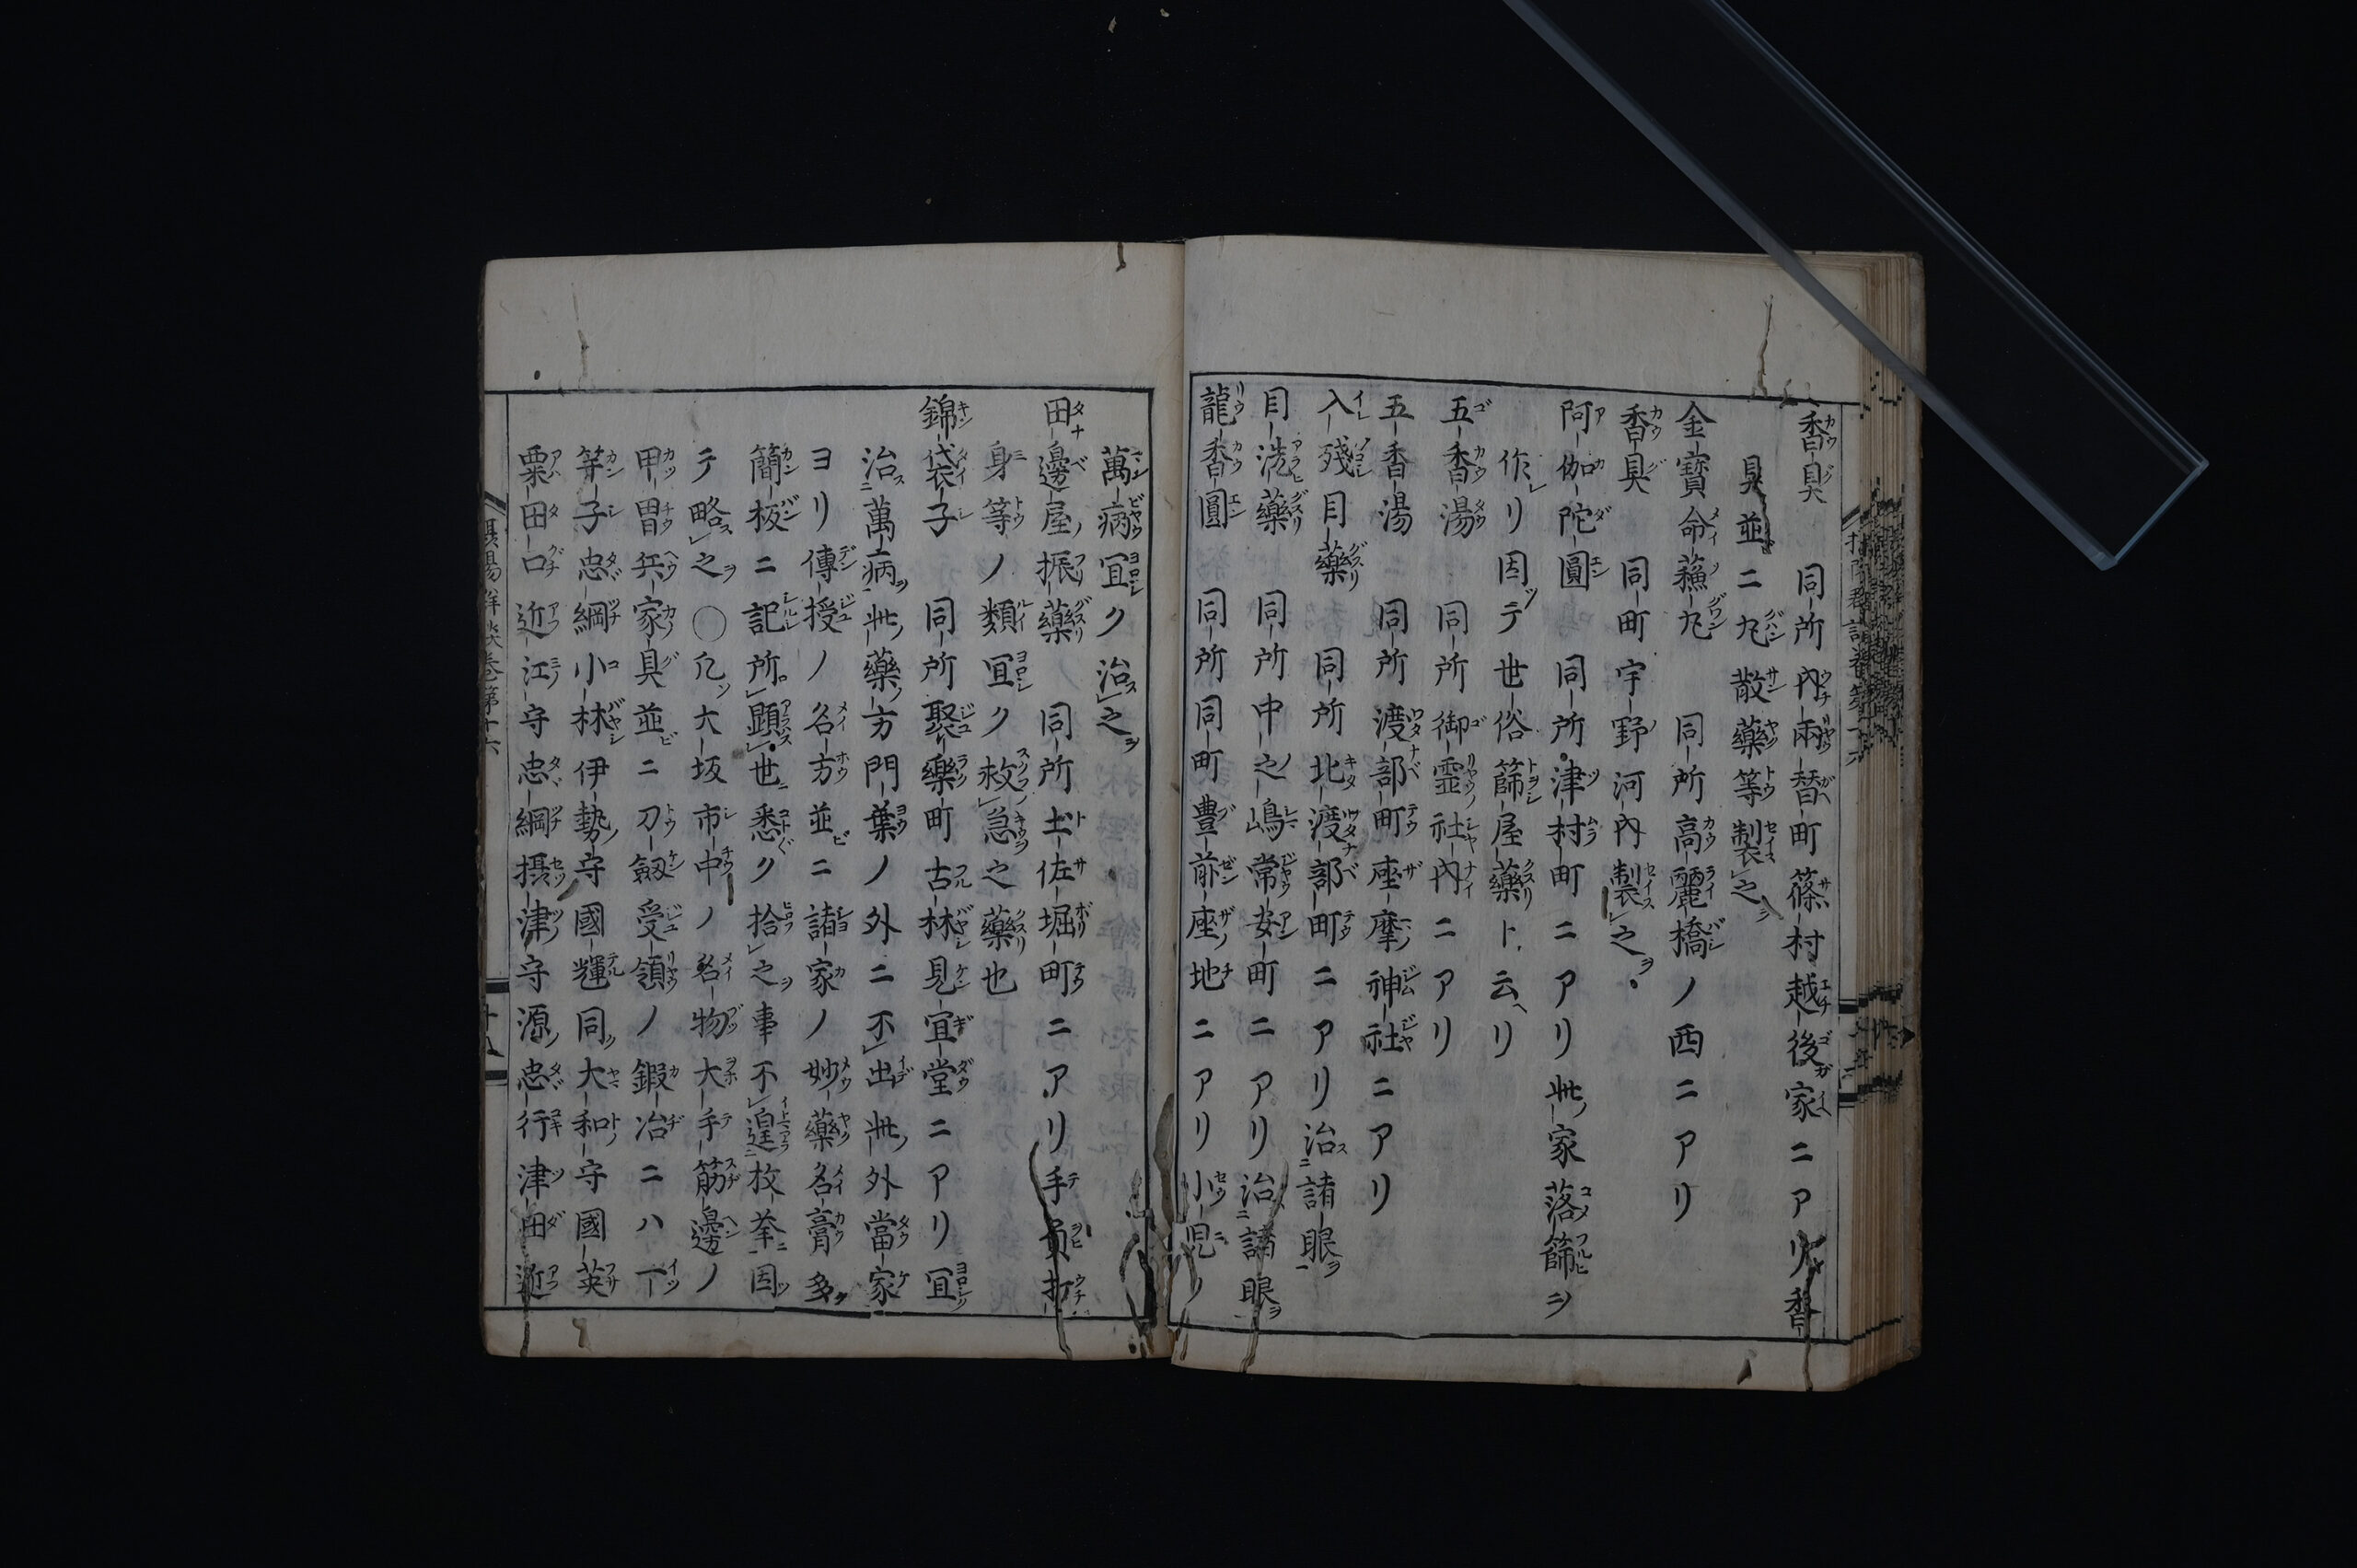 香具　同所内兩替町篠村越後家ニアリ香
具並ニ丸散藥等製之
金寶命蘓丸　同所高麗橋ノ西ニアリ
香具　同町宇野河内製之
阿伽陀圓　同所津村町ニアリ此家落篩ニ
作リ因テ世俗篩屋藥ト云リ
五香湯　同所御霊社内ニアリ
五香湯　同所渡部町座摩神社ニアリ
入殘目藥　同所北渡部町ニアリ治諸眼
目洗藥　同所中之嶋常安町ニアリ治諸眼
龍香圓　同所同町豊前座地ニアリ小児ノ
萬病宜ク治之
田邊屋振藥　同所土佐堀町ニアリ手負打
身等ノ類宜ク救急之藥也
錦袋子　同所聚樂町古林見宜堂ニアリ宜
治萬病此藥方門葉ノ外ニ不出此外當家
ヨリ傳授ノ名方並ニ諸家ノ妙藥名膏多
簡板ニ記所顕世悉ク拾之事不遑枚挙因
テ略之〇凡大坂市中ノ名物大手筋邊ノ
甲冑兵家具並ニ刀劔受領ノ鍜冶ニハ一
竿子忠綱小林伊勢守國輝同大和守國英
粟田口近江守忠綱摂津守源忠行津田近
摂陽群談巻第十六
十八